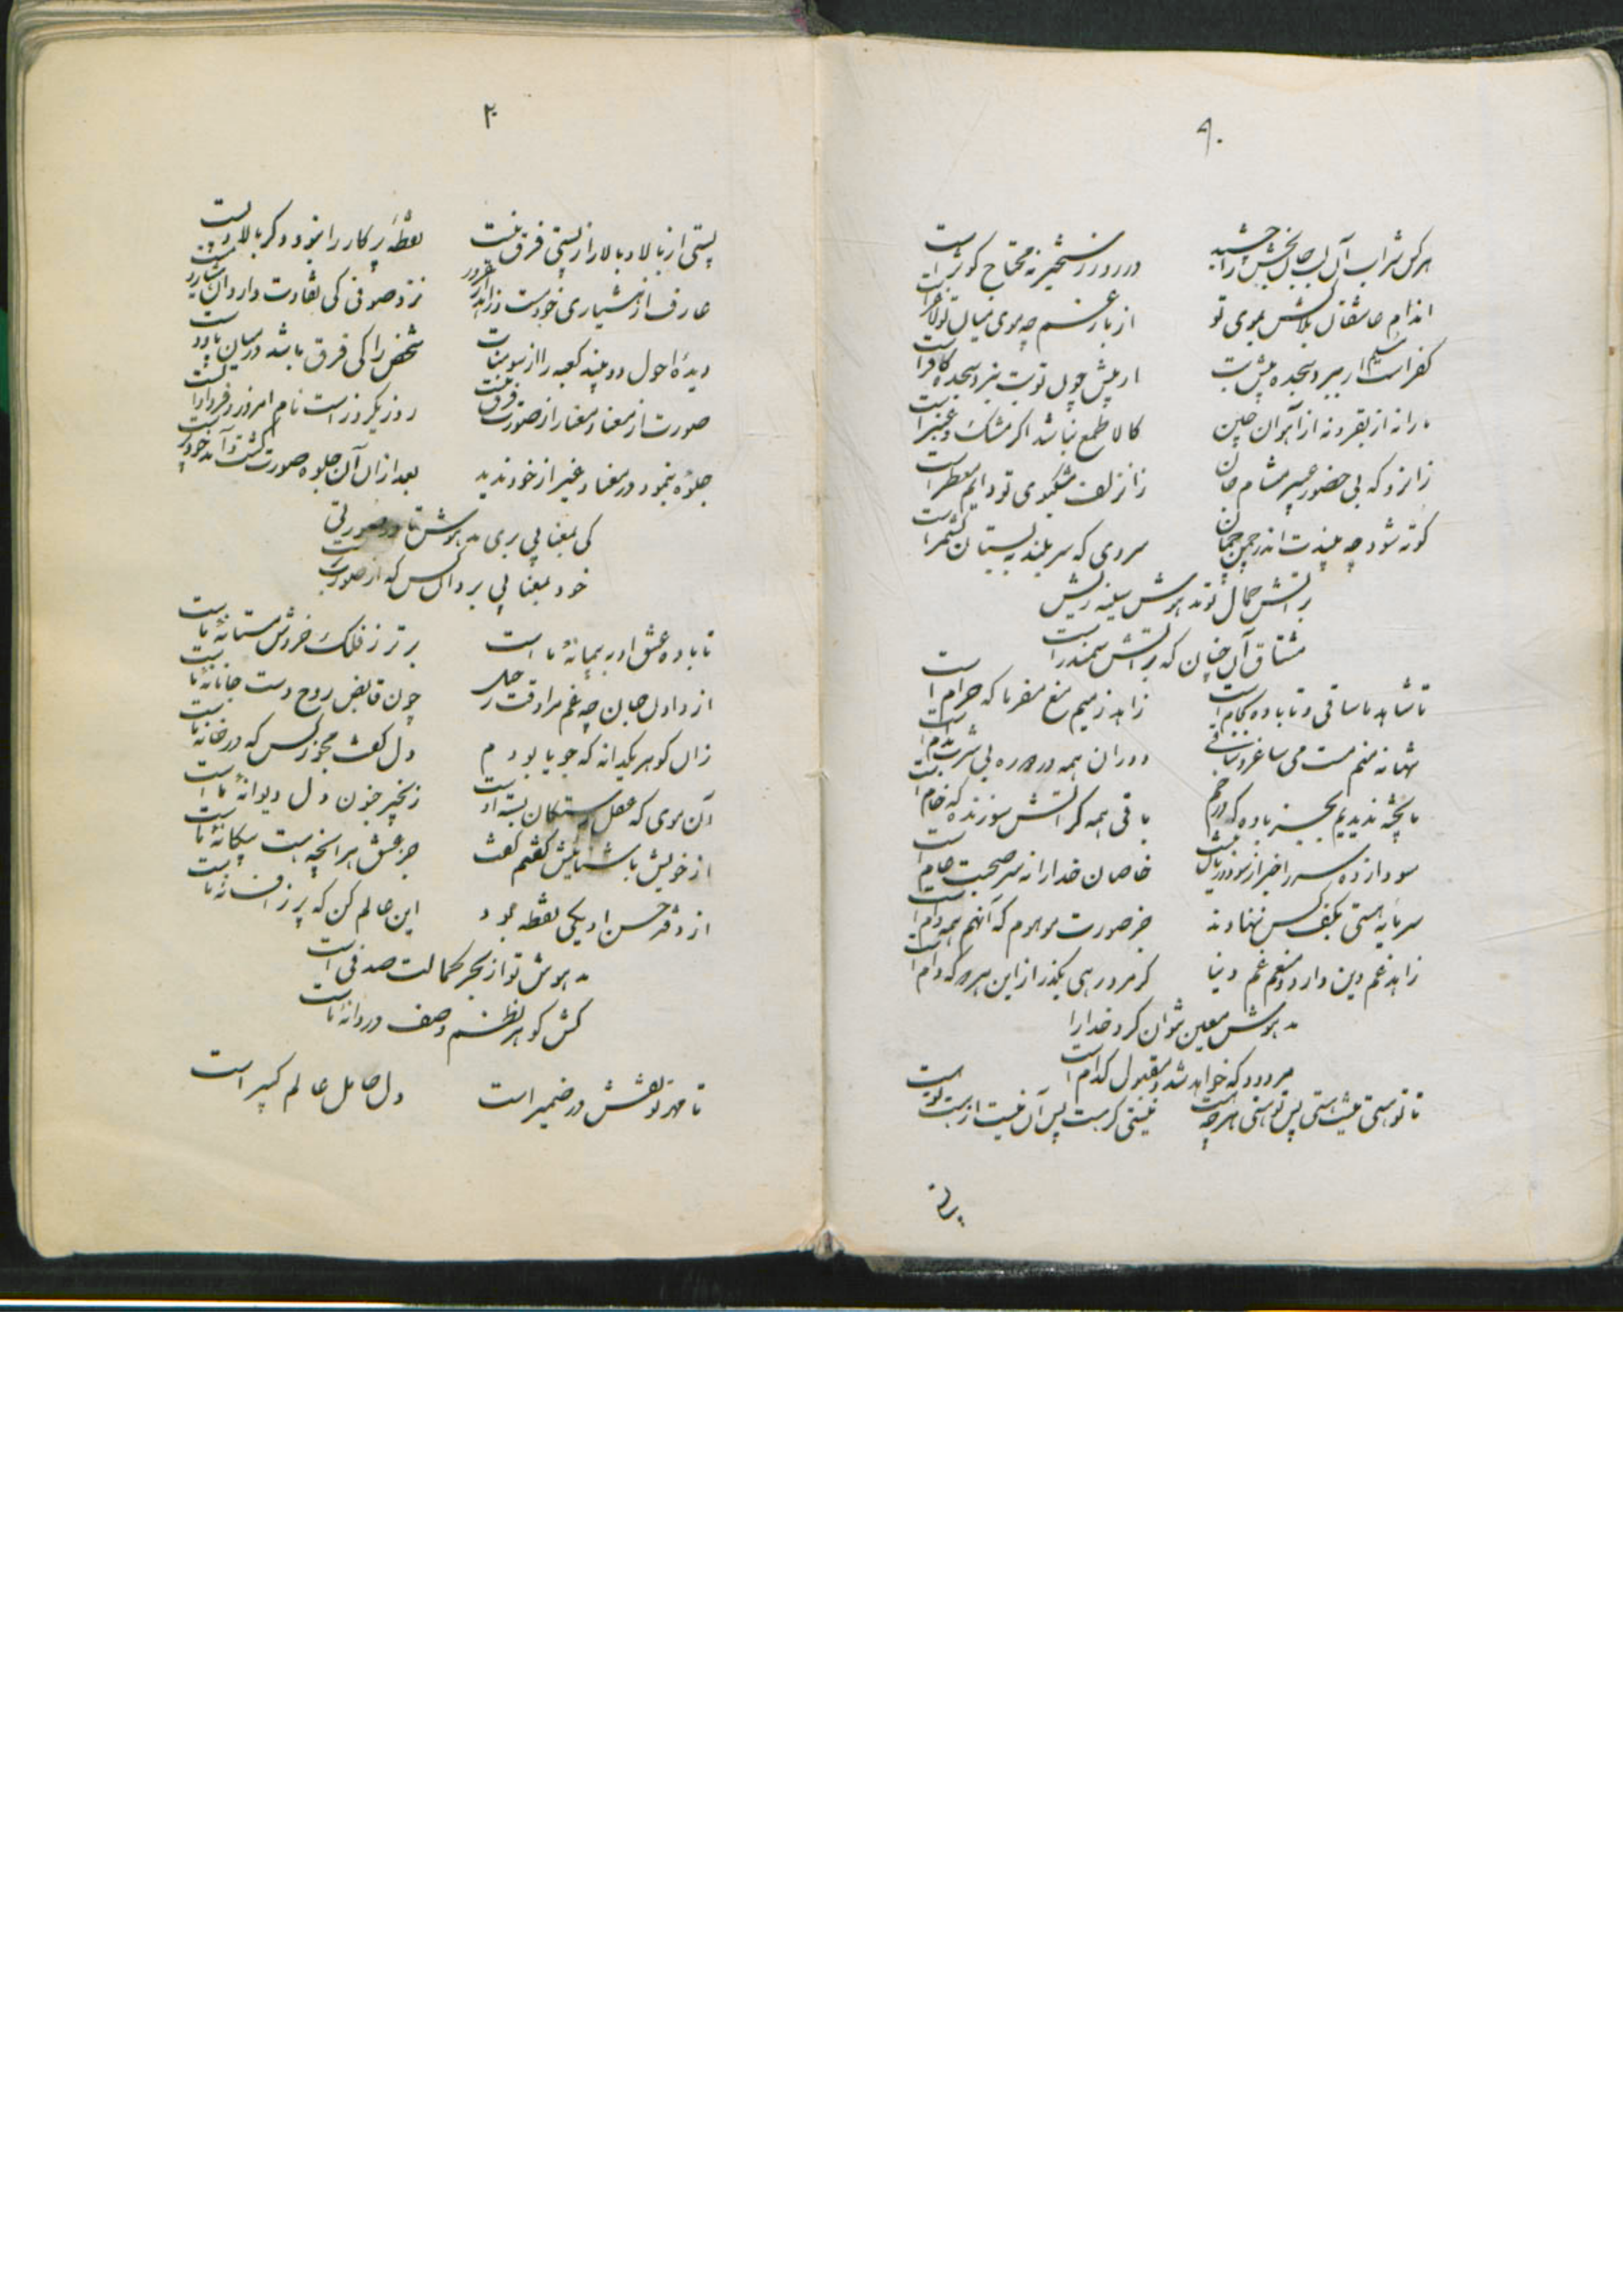 هرکس شراب آن لب جان بخش را چشید در روز رستخیز نه محتاج کوثر است
اندام عاشقان بلاکش بموی تو از بار غم چه موی میان تو لاغر است
کفر است ار سلیم برد سجده پیش بت ار پیش چون تو بت نبرد سجده کافر است
ما را نه از تقرو نه از آهوان چین کالا طمع نباشد اگر مشک و عنبر است
زانرو که بی حضور عبیر مشام جان زان زلف مشکبوی تو دایم معطر است
کوته شود چه بیندت اندر چمن چمان سروی که سر بلند به بستان کشمر است
بر آتش جمال تو مدهوش سینه ریش
مشتاق آن چنان که بر آتش سمندر است
تا شاهد ما ساقی و تا باده بکام است زاهد ز میم منع مفرما که حرام است
تنها نه منم مست می ساغر و ساقی دوران همه در دوره بی شرب مدام است
ما پخته ندیدیم بجز باده که در خم باقی همه گر آتش سوزنده که خام است
سودازده سر را خبر از سود و زیان نیست خاصان خدا را نه سر صحبت عام است
سرمایه هستی بکف کس ننهادند جز صورت موهوم که آنهم همه دام است
زاهد غم دین دارد و منعم غم دنیا گر مرد رهی بگذر از این هر دو که دام است
مدهوش معین نتوان کرد خدا را
مردود که خواهد شد و مقبول کدام است
تا تو هستی نیست هستی پس تو هستی هرچه هست نیستی گر هست پس آن نیست از هست تو است
۲۰
پستی از بالا و بالا را ز پستی فرق نیست نقطه پرکار را نبود دگر بالا و پست
عارف از هشیاری خود مست و زاهد از غرور نزد صوفی کی تفاوت دارد آن هشیار و مست
دیده احول دو بیند کعبه را از سومنات شخص را کی فرق باشد در میان پا و دست
صورت از معنا و معنا را ز صورت فرق نیست روز یک روز است نام امروز و فردا و الست
جلوه بنمود در معنا و غیر از خود ندید بعد از آن آن جلوه صورت گشت و آمد خود پرست
کی بمعنا پی بری مدهوش تا در صورتی
خود بمعنا پی برد آن کس که از صورت برست
تا باده عشق او به پیمانه ما است برتر ز فلک خروش مستانه ما است
از دادن جان چه غم مرا وقت رحیل چون قابض روح دست جانانه ما است
زان گوهر یکدانه که جویا بودم دل گفت مجو ز کس که در خانه ما است
آن موی که عقل رستگان بسته اوست زنجیر جنون دل دیوانه ما است
از خویش با شنائیش گفتم گفت جز عشق هر انچه هست بیگانه ما است
از دفتر حسن او یکی نقطه نمود این عالم کن که پر ز افسانه ما است
مدهوش تو از بحر کمالت صدفی است
کش گوهر نظم وصف دردانه ما است
تا مهر تو نقش در ضمیر است دل حامل عالم کبیر است